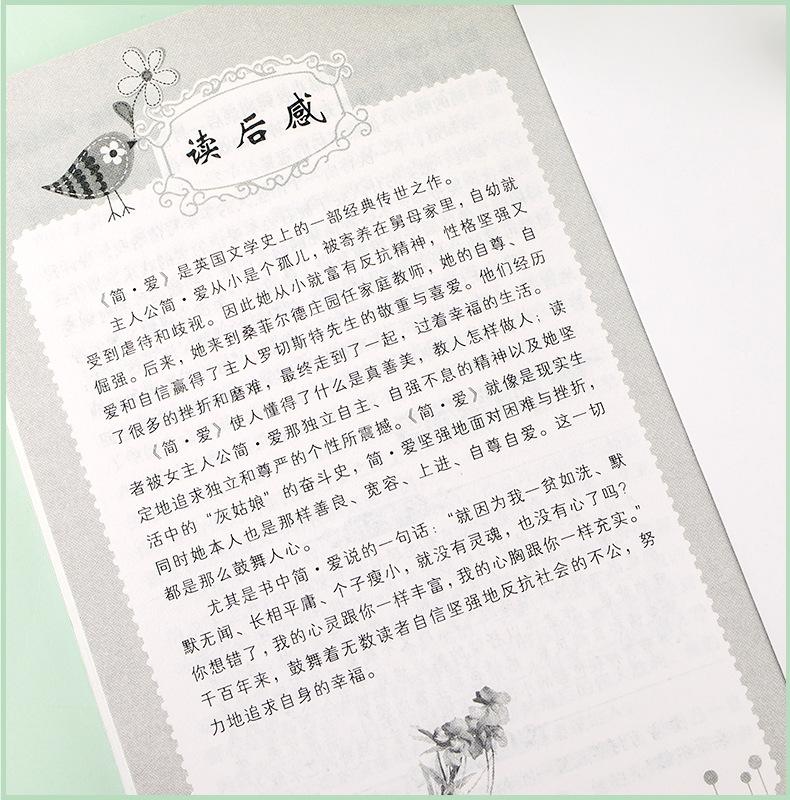 读后感
《简·爱》是英国文学史上的一部经典传世之作。
主人公简·爱从小是个孤儿，被寄养在舅母家里，自幼就
受到虐待和歧视。因此她从小就富有反抗精神，性格坚强又
倔强。后来，她来到桑菲尔德庄园任家庭教师，她的自尊、自
爱和自信赢得了主人罗切斯特先生的敬重与喜爱。他们经历
了很多的挫折和磨难，最终走到了一起，过着幸福的生活。
《简·爱》使人懂得了什么是真善美，教人怎样做人；读
者被女主人公简·爱那独立自主、自强不息的精神以及她坚
定地追求独立和尊严的个性所震撼。《简·爱》就像是现实生
活中的“灰姑娘”的奋斗史，简·爱坚强地面对困难与挫折，
同时她本人也是那样善良、宽容、上进、自尊自爱。这一切
都是那么鼓舞人心。
尤其是书中简·爱说的一句话：“就因为我一贫如洗、默
默无闻、长相平庸、个子瘦小，就没有灵魂，也没有心了吗？
你想错了，我的心灵跟你一样丰富，我的心胸跟你一样充实。”
千百年来，鼓舞着无数读者自信坚强地反抗社会的不公，努
力地追求自身的幸福。